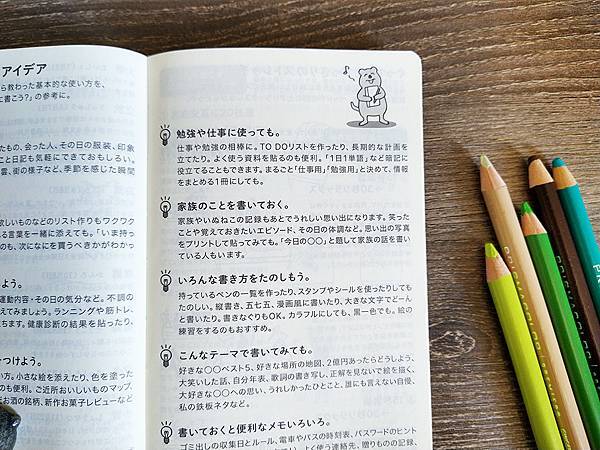 アイデア
ら教わった基本的な使い方を、
に書こう?」の参考に。
たもの、会った人、その日の服装、印象
こと日記も気軽にできておもしろい。
雲、街の様子など、季節を感じた瞬間
欲しいものなどのリスト作りもワクワク
る言葉を一緒に添えても。「いま持っ
のも、次になにを買うべきかがわかっ
よう。
運動内容・その日の気分など。不調の
えてみましょう。ランニングや筋トレ、
立ちます。健康診断の結果を貼ったり、
つけよう。
い方。小さな絵を添えたり、色を塗った
のも便利。ご近所おいしいものマップ、
お酒の銘柄、新作お菓子レビューなど
勉強や仕事に使っても。
仕事や勉強の相棒に。TO DOリストを作ったり、長期的な計画を
立てたり。よく使う資料を貼るのも便利。「1日1単語」など暗記に
役立てることもできます。まるごと「仕事用」「勉強用」と決めて、情報
をまとめる1冊にしても。
家族のことを書いておく。
家族やいぬねこの記録もあとでうれしい思い出になります。笑った
ことや覚えておきたいエピソード、その日の体調など。思い出の写真
をプリントして貼ってみても。「今日の〇〇」と題して家族の話を書い
ている人もいます。
いろんな書き方をたのしもう。
持っているペンの一覧を作ったり、スタンプやシールを使ったりしても
たのしい。縦書き、五七五、漫画風に書いたり、大きな文字でどーん
と書いたり。書きなぐりもOK。カラフルにしても、黒一色でも。絵の
練習をするのもおすすめ。
こんなテーマで書いてみても。
好きな〇〇ベスト5、好きな場所の地図、2億円あったらどうしよう、
大笑いした話、自分年表、歌詞の書き写し、正解を見ないで絵を描く、
大好きな〇〇への思い、うれしかったひとこと、誰にも言えない自慢、
私の鉄板ネタなど。
書いておくと便利なメモいろいろ。
ゴミ出しの収集日とルール、電車やバスの時刻表、パスワードのヒント
よく使う連絡先、贈りものの記録、